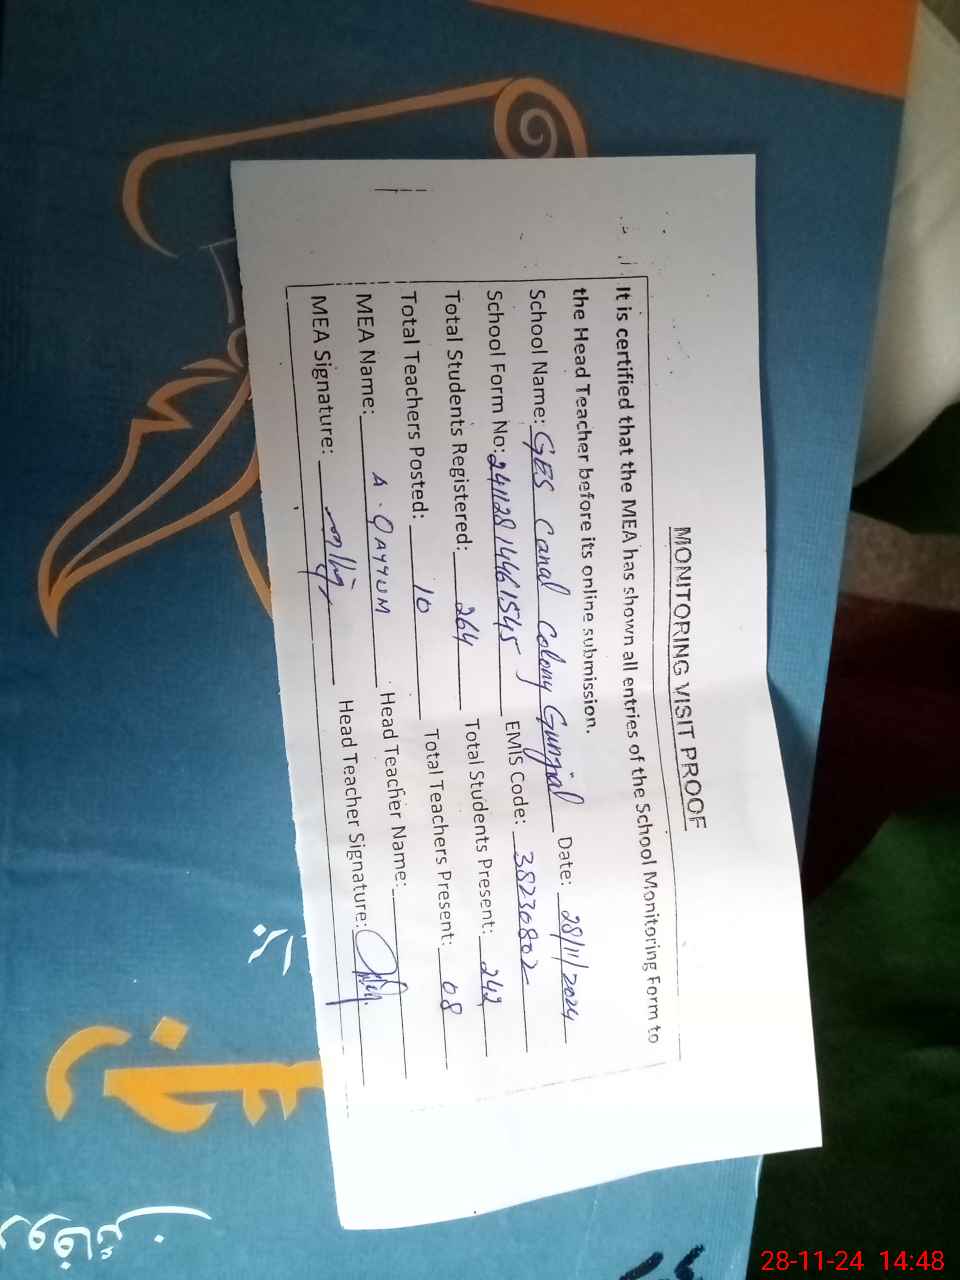 MONITORING VISIT PROOF
It is certified that the MEA has shown all entries of the School Monitoring Form to
the Head Teacher before its online submission.
School Name: GES Canal Colony Gunjial Date: 28/11/2024
School Form No: 24112814461545 EMIS Code: 38230802
Total Students Registered: 264 Total Students Present: 242
Total Teachers Posted: 10 Total Teachers Present: 08
MEA Name: A. QAYYUM Head Teacher Name:
MEA Signature: Head Teacher Signature:
28-11-24 14:48